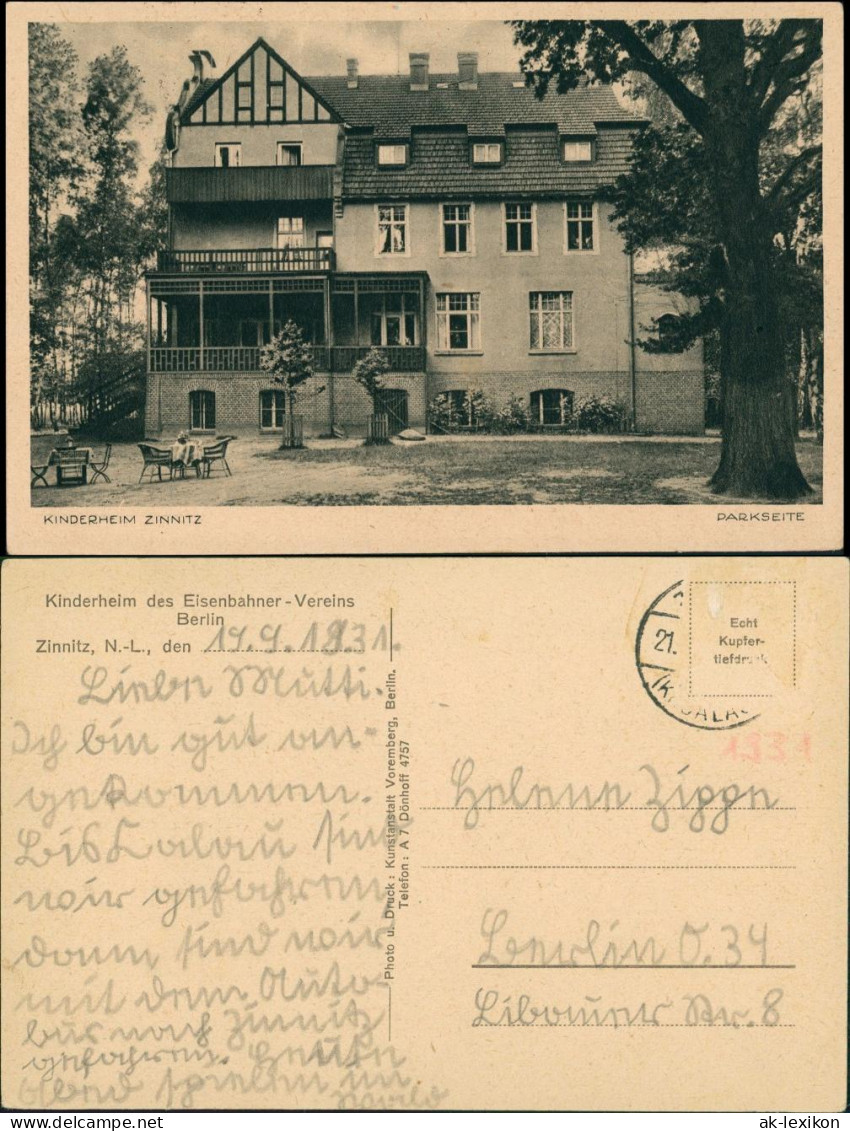 KINDERHEIM ZINNITZ
PARKSEITE
Kinderheim des Eisenbahner-Vereins
Berlin
Zinnitz, N.-L., den 14.9.1931.
Liebe Mutti.
Ich bin gut an-
gekommen.
Bis Calau sind
wir gefahren
dann sind wir
mit dem Auto-
bus nach Zinnitz
gefahren. Heute
Abend spielen im
Wald
Photo u. Druck: Kunstanstalt Voremberg, Berlin.
Telefon: A 7 Dönhoff 4757
21.
CALAU
Echt
Kupfer-
tiefdruck
1931
Helene Zippe
Berlin O. 34
Libauer Str. 8
ak-lexikon